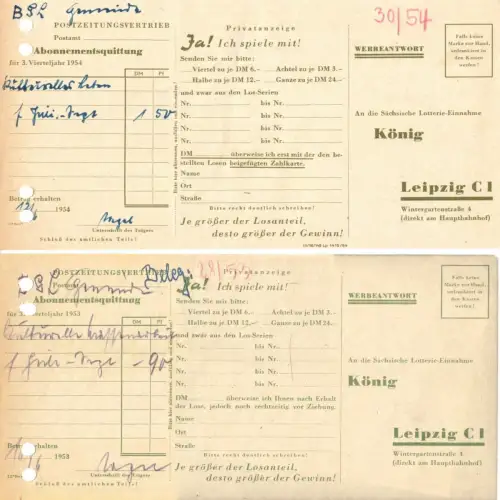 BSL Gemeinde
POSTZEITUNGSVERTRIEB
Postamt
Abonnementsquittung
für 3. Vierteljahr 1954
DM Pf
Kulturelles Leben
f Juli.-Sept 1 50
Betrag erhalten
1954
Unterschrift des Trägers
Schluß des amtlichen Teils!
Privatanzeige
Ja! Ich spiele mit!
Senden Sie mir bitte:
Viertel zu je DM 6.– Achtel zu je DM 3.–
Halbe zu je DM 12.– Ganze zu je DM 24.–
und zwar aus den Los-Serien
Nr. bis Nr.
Nr. bis Nr.
Nr. bis Nr.
Nr. bis Nr.
DM überweise ich erst mit der den bestellten Losen beigefügten Zahlkarte.
Name
Ort
Straße
Bitte recht deutlich schreiben!
Je größer der Losanteil,
desto größer der Gewinn!
30/54
WERBEANTWORT
Falls keine
Marke zur Hand,
unfrankiert in
den Kasten
werfen!
An die Sächsische Lotterie-Einnahme
König
Leipzig C 1
Wintergartenstraße 4
(direkt am Hauptbahnhof)
POSTZEITUNGSVERTRIEB
Beleg
Abonnementsquittung
für 3. Vierteljahr 1953
DM Pf
f Juli-Sept -90
Betrag erhalten
1953
Unterschrift des Trägers
Schluß des amtlichen Teils!
Privatanzeige
Ja! Ich spiele mit!
Senden Sie mir bitte:
Viertel zu je DM 6.– Achtel zu je DM 3.–
Halbe zu je DM 12.– Ganze zu je DM 24.–
und zwar aus den Los-Serien
Nr. bis Nr.
Nr. bis Nr.
Nr. bis Nr.
Nr. bis Nr.
DM überweise ich Ihnen nach Erhalt
der Lose, jedoch noch rechtzeitig vor Ziehung.
Name
Ort
Straße
Bitte recht deutlich schreiben!
Je größer der Losanteil,
desto größer der Gewinn!
WERBEANTWORT
Falls keine
Marke zur Hand,
unfrankiert in
den Kasten
werfen!
An die Sächsische Lotterie-Einnahme
König
Leipzig C 1
Wintergartenstraße 4
(direkt am Hauptbahnhof)